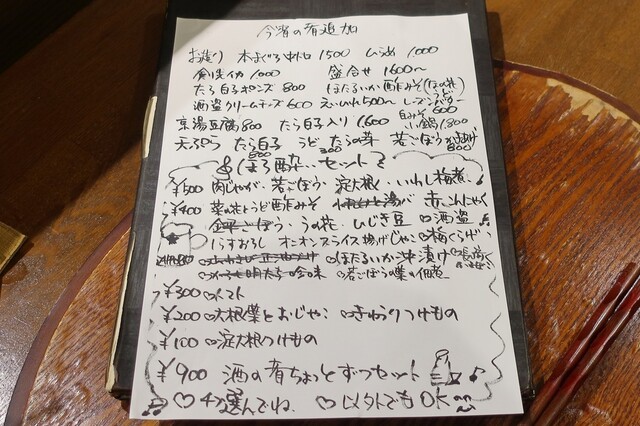 今宵の肴追加
お造り 本まぐろ中トロ 1500 ひらめ 1,000
剣先イカ 1,000 盛合せ 1600〜
たら白子ポンズ 800 ほたるいか酢みそ(菜の花)うど
酒盗クリームチーズ 600 えいひれ 500〜 レーズンバター 600
京湯豆腐 800 たら白子入り 1,100 白みそ小鍋 1,800
天ぷら たら白子 800 うど 300 たらの芽 若ごぼうかきあげ 800
ほろ酔いセット
¥500 肉じゃが・若ごぼう・淀大根・いわし梅煮
¥400 菜の花とうど酢みそ 赤こんにゃく
うの花・ひじき豆 ♡酒盗
しらすおろし オニオンスライス 揚げじゃこ ♡梅くらげ
♡ほたるいか沖漬け
明太子 珍味 ♡若ごぼうの葉の佃煮
¥300 ♡トマト
¥200 ♡大根葉とおじゃこ ♡きゅうりつけもの
¥100 ♡淀大根つけもの
¥900 酒の肴ちょっとずつセット
♡ 4つ選んでね ♡以外でもOK